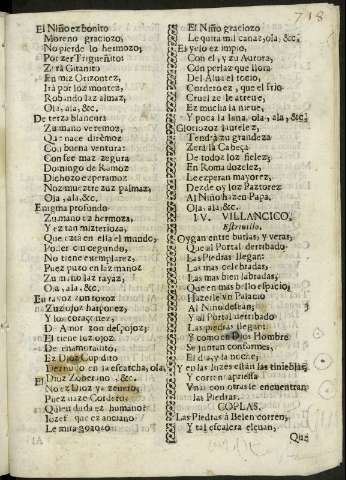 718
El Niño ez bonito
Moreno graciozo,
No pierde lo hermozo;
Por zer Trigueñito
Zera Gitanito
En miz Orizontez,
Irá por loz montez,
Robando laz almaz,
Ola, ala, &c.
De terza blancura
Zu mano veremoz,
Con buena ventura:
Con fee maz zegura
Domingo de Ramoz
Dichozo ezperamoz
Noz mueztre zuz palmaz,
Ola, ala, &c.
Enigma profundo
Zu mano ez hermoza,
Y ez tan mizterioza,
Que ezta en ella el mundo,
Poder zin cegundo,
No tiene exemplarez,
Puez puzo en laz manoz
Zu mano laz rayaz,
Ola, ala, &c.
En rayoz
Zuz ojoz harponez,
Y loz
De Amor zon despojoz;
El tiene loz ojoz
De enamoradito,
Ez Dioz Cupidito
Dormido en la escatcha, ola,
El Dioz Zoberano, &c.
No ez Dioz ya zeñudo,
Puez naze Cordero
Quien duda ez humano?
Iozef que ez anciano
Le mira gozozo
El Niño graciozo
Le quita mil canaz, ola, &c.
El yelo ez impio,
Con el, y zu Aurora,
Con perlaz que llora
Del Alua el rocio,
Cordero ez, que el frio
Cruel ze le atreue,
Ez mucha la nieue,
Y poca la lana, ola, ala, &c.
Gloriozoz laurelez,
Tendrá zu grandeza
Zerá la Cabeça
De todoz loz fielez;
En Roma dozelez,
Le ezperan mayorez,
Dezde oy loz Paztorez
Al Niño hazen Papa,
Ola, ala, &c.
IV. VILLANCICO.
Estriuillo.
Oygan entre burlas, y veras,
Que al Portal derribado
Las Piedras llegan:
Las mas celebradas,
Las mas bien labradas,
Que en mas brillo espacio,
Hazerle vn Palacio
Al Niño desean;
Y al Portal derribado
Las piedras llegan:
Y como en Dios Hombre
Se juntan conformes,
El dia, y la noche;
Y en las luzes están las tinieblas,
Y corren apriessa
Vnas con otras se encuentran
las Piedras.
COPLAS.
Las Piedras à Belen corren,
Y tal escalera
Que